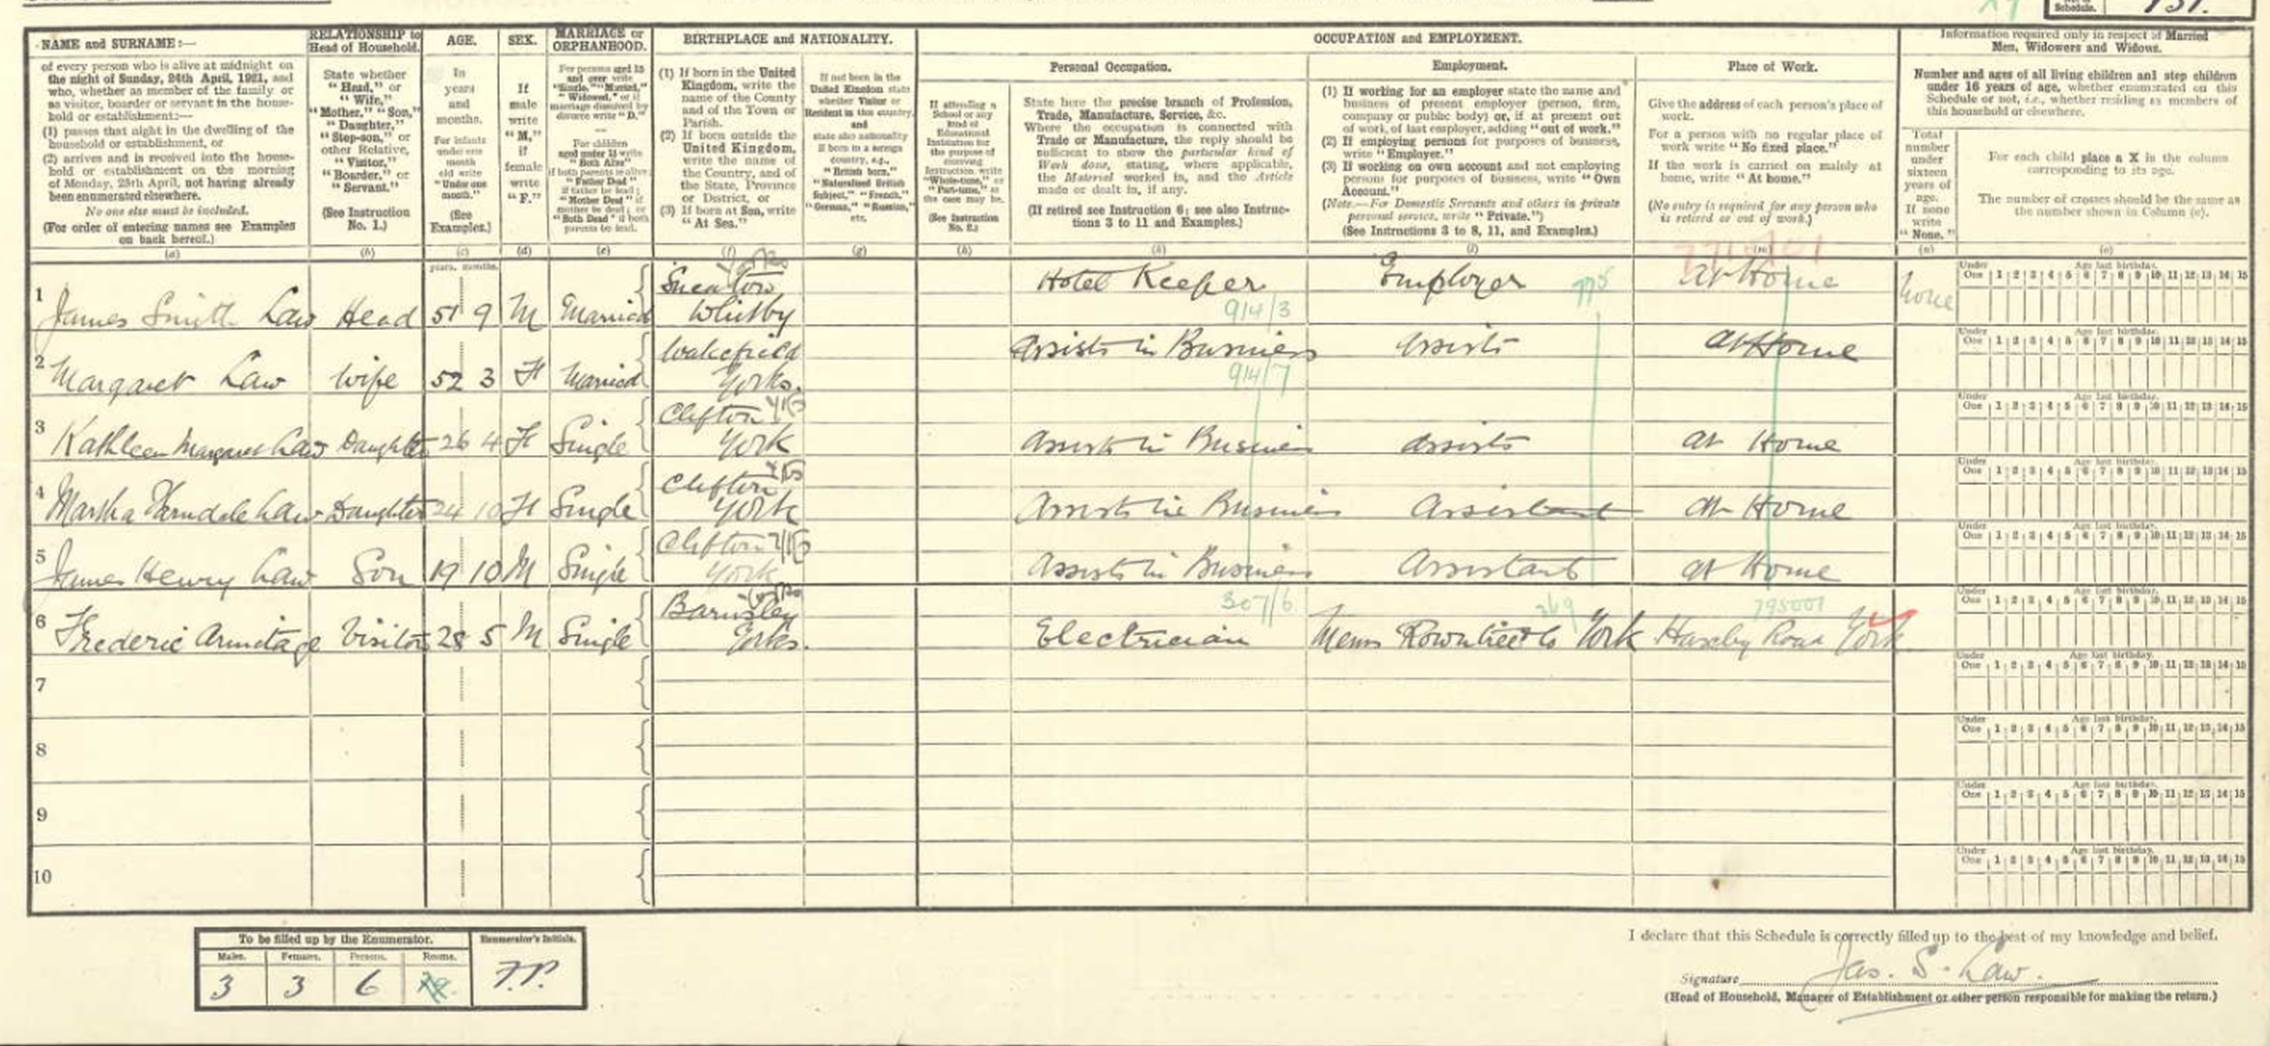 Schedule. 137.
NAME and SURNAME:—
of every person who is alive at midnight on
the night of Sunday, 24th April, 1921, and
who, whether as member of the family or
as visitor, boarder or servant in the house-
hold or establishment:—
(1) passes that night in the dwelling of the
household or establishment, or
(2) arrives and is received into the house-
hold or establishment on the morning
of Monday, 25th April, not having already
been enumerated elsewhere.
No one else must be included.
(For order of entering names see Examples
on back hereof.)
(a)
RELATIONSHIP to
Head of Household.
State whether
"Head," or
"Wife,"
"Mother," "Son,"
"Daughter,"
"Step-son," or
other Relative,
"Visitor,"
"Boarder," or
"Servant."
(See Instruction
No. 1.)
(b)
AGE.
In
years
and
months.
For infants
under one
month
old write
"Under one
month."
(See
Examples.)
(c)
years. months.
SEX.
If
male
write
"M,"
if
female
write
"F."
(d)
MARRIAGE or
ORPHANHOOD.
For persons aged 15
and over write
"Single," "Married,"
"Widowed," or if
marriage dissolved by
divorce write "D."
For children
aged under 15 write
"Both Alive"
if both parents is alive;
"Father Dead"
if father be dead;
"Mother Dead" if
mother be dead; or
"Both Dead" if both
parents be dead.
(e)
BIRTHPLACE and NATIONALITY.
(1) If born in the United
Kingdom, write the
name of the County
and of the Town or
Parish.
(2) If born outside the
United Kingdom,
write the name of
the Country, and of
the State, Province
or District, or
(3) If born at Sea, write
"At Sea."
(f)
If not born in the
United Kingdom state
whether Visitor or
Resident in this country,
and
state also nationality
if born in a foreign
country, e.g.,
"British born,"
"Naturalised British
Subject," "French,"
"German," "Russian,"
etc.
(g)
OCCUPATION and EMPLOYMENT.
If attending a
School or any
kind of
Educational
Institution for
the purpose of
receiving
instruction, write
"Whole-time," or
"Part-time," as
the case may be.
(See Instruction
No. 2.)
(h)
Personal Occupation.
State here the precise branch of Profession,
Trade, Manufacture, Service, &c.
Where the occupation is connected with
Trade or Manufacture, the reply should be
sufficient to show the particular kind of
Work done, stating, where applicable,
the Material worked in, and the Article
made or dealt in, if any.
(If retired see Instruction 6; see also Instruc-
tions 3 to 11 and Examples.)
(k)
Employment.
(1) If working for an employer state the name and
business of present employer (person, firm,
company or public body) or, if at present out
of work, of last employer, adding "out of work."
(2) If employing persons for purposes of business,
write "Employer."
(3) If working on own account and not employing
persons for purposes of business, write "Own
Account."
(Note.—For Domestic Servants and others in private
personal service, write "Private.")
(See Instructions 3 to 8, 11, and Examples.)
(l)
Place of Work.
Give the address of each person's place of
work.
For a person with no regular place of
work write "No fixed place."
If the work is carried on mainly at
home, write "At home."
(No entry is required for any person who
is retired or out of work.)
(m)
Information required only in respect of Married
Men, Widowers and Widows.
Number and ages of all living children and step children
under 16 years of age, whether enumerated on this
Schedule or not, i.e., whether residing as members of
this household or elsewhere.
Total
number
under
sixteen
years of
age.
If none
write
"None."
(n)
For each child place a X in the column
corresponding to its age.
The number of crosses should be the same as
the number shown in Column (n).
(o)
1 James Smith Law Head 51 9 M Married Sneaton Whitby Hotel Keeper 914/3 Employer 775 at Home none
2 Margaret Law Wife 52 3 F Married Wakefield Yorks. Assists in Business 914/7 Assists at Home
3 Kathleen Margaret Law Daughter 26 4 F Single Clifton York Assists in Business Assists at Home
4 Martha Law Daughter 24 10 F Single Clifton York Assists in Business Assistant at Home
5 James Henry Law Son 19 10 M Single Clifton York Assists in Business Assistant at Home
6 Frederic Armitage Visitor 28 5 M Single Barnsley Yorks. Electrician 307/6 Messrs Rowntree & Co York 369 Haxby Road York 795001
7
8
9
10
Under One 1 2 3 4 5 6 7 8 9 10 11 12 13 14 15
Age last birthday.
To be filled up by the Enumerator.
Males. Females. Persons. Rooms.
3 3 6
Enumerator's Initials.
F.P.
I declare that this Schedule is correctly filled up to the best of my knowledge and belief.
Signature Jas. S. Law.
(Head of Household, Manager of Establishment or other person responsible for making the return.)